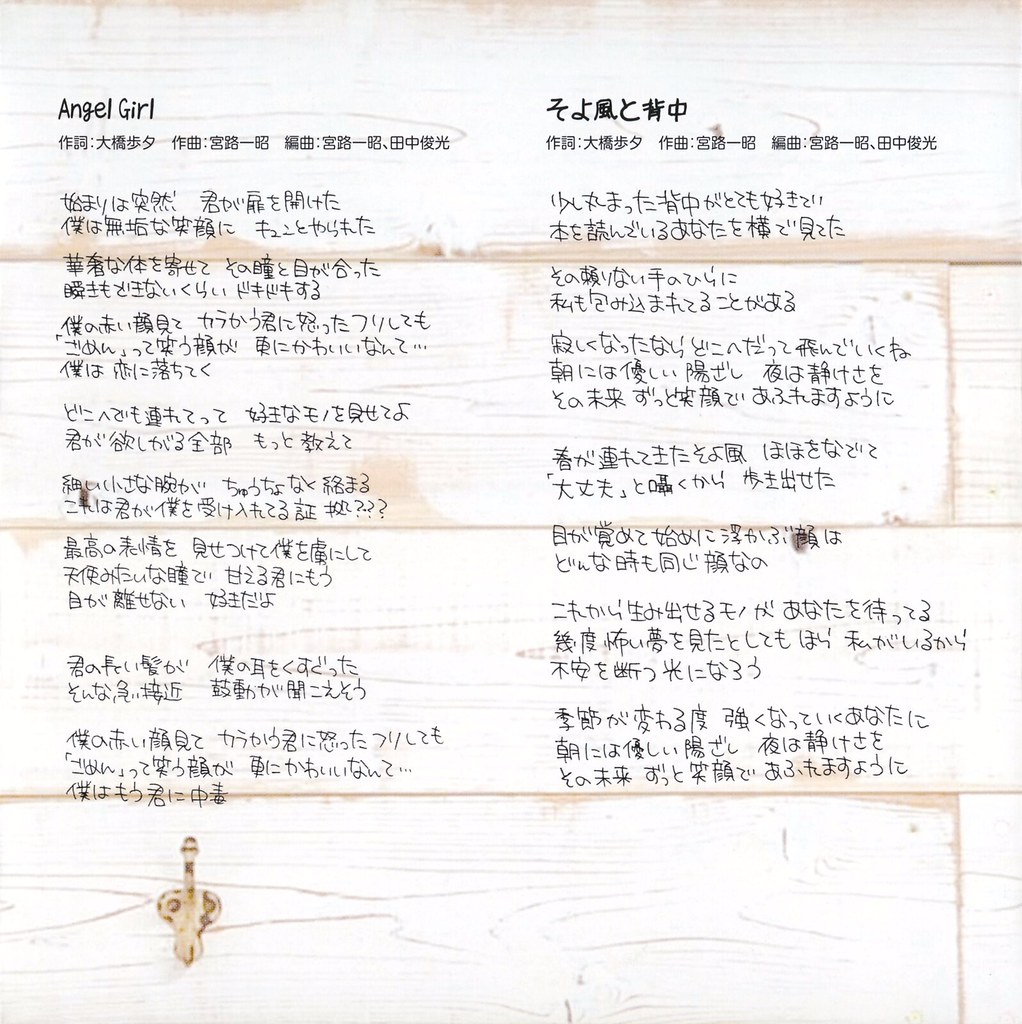 Angel Girl
作詞：大橋歩夕　作曲：宮路一昭　編曲：宮路一昭、田中俊光
始まりは突然　君が扉を開けた
僕は無垢な笑顔に　キュンとやられた
華奢な体を寄せて　その瞳と目が合った
瞬きもできないくらい　ドキドキする
僕の赤い顔見て　カラかう君に怒ったフリしても
「ごめん」って笑う顔が　更にかわいいなんて…
僕は 恋に落ちてく
どこへでも連れてって　好きなモノを見せてよ
君が欲しがる全部　もっと教えて
細い小さな腕が　ちゅうちょなく絡まる
これは君が僕を受け入れてる証拠???
最高の表情を　見せつけて僕を虜にして
天使みたいな瞳で　甘える君にもう
目が離せない　好きだよ
君の長い髪が　僕の耳をくすぐった
そんな急接近　鼓動が聞こえそう
僕の赤い顔見て　カラかう君に怒ったフリしても
「ごめん」って笑う顔が　更にかわいいなんて…
僕はもう君に中毒
そよ風と背中
作詞：大橋歩夕　作曲：宮路一昭　編曲：宮路一昭、田中俊光
少し丸まった背中がとても好きでい
本を読んでいるあなたを横で見てた
その頼りない手のひらに
私も包み込まれてることがある
寂しくなったなら どこへだって飛んでいくね
朝には優しい陽ざし　夜は静けさを
その未来 ずっと笑顔で あふれますように
春が連れてきたそよ風　ほほをなでて
「大丈夫」と囁くから　歩き出せた
目が覚めて始めに浮かぶ顔は
どんな時も同じ顔なの
これから生み出せるモノが あなたを待ってる
幾度怖い夢を見たとしても ほら 私がいるから
不安を断つ光になろう
季節が変わる度　強くなっていくあなたに
朝には優しい陽ざし　夜は静けさを
その未来 ずっと笑顔で あふれますように